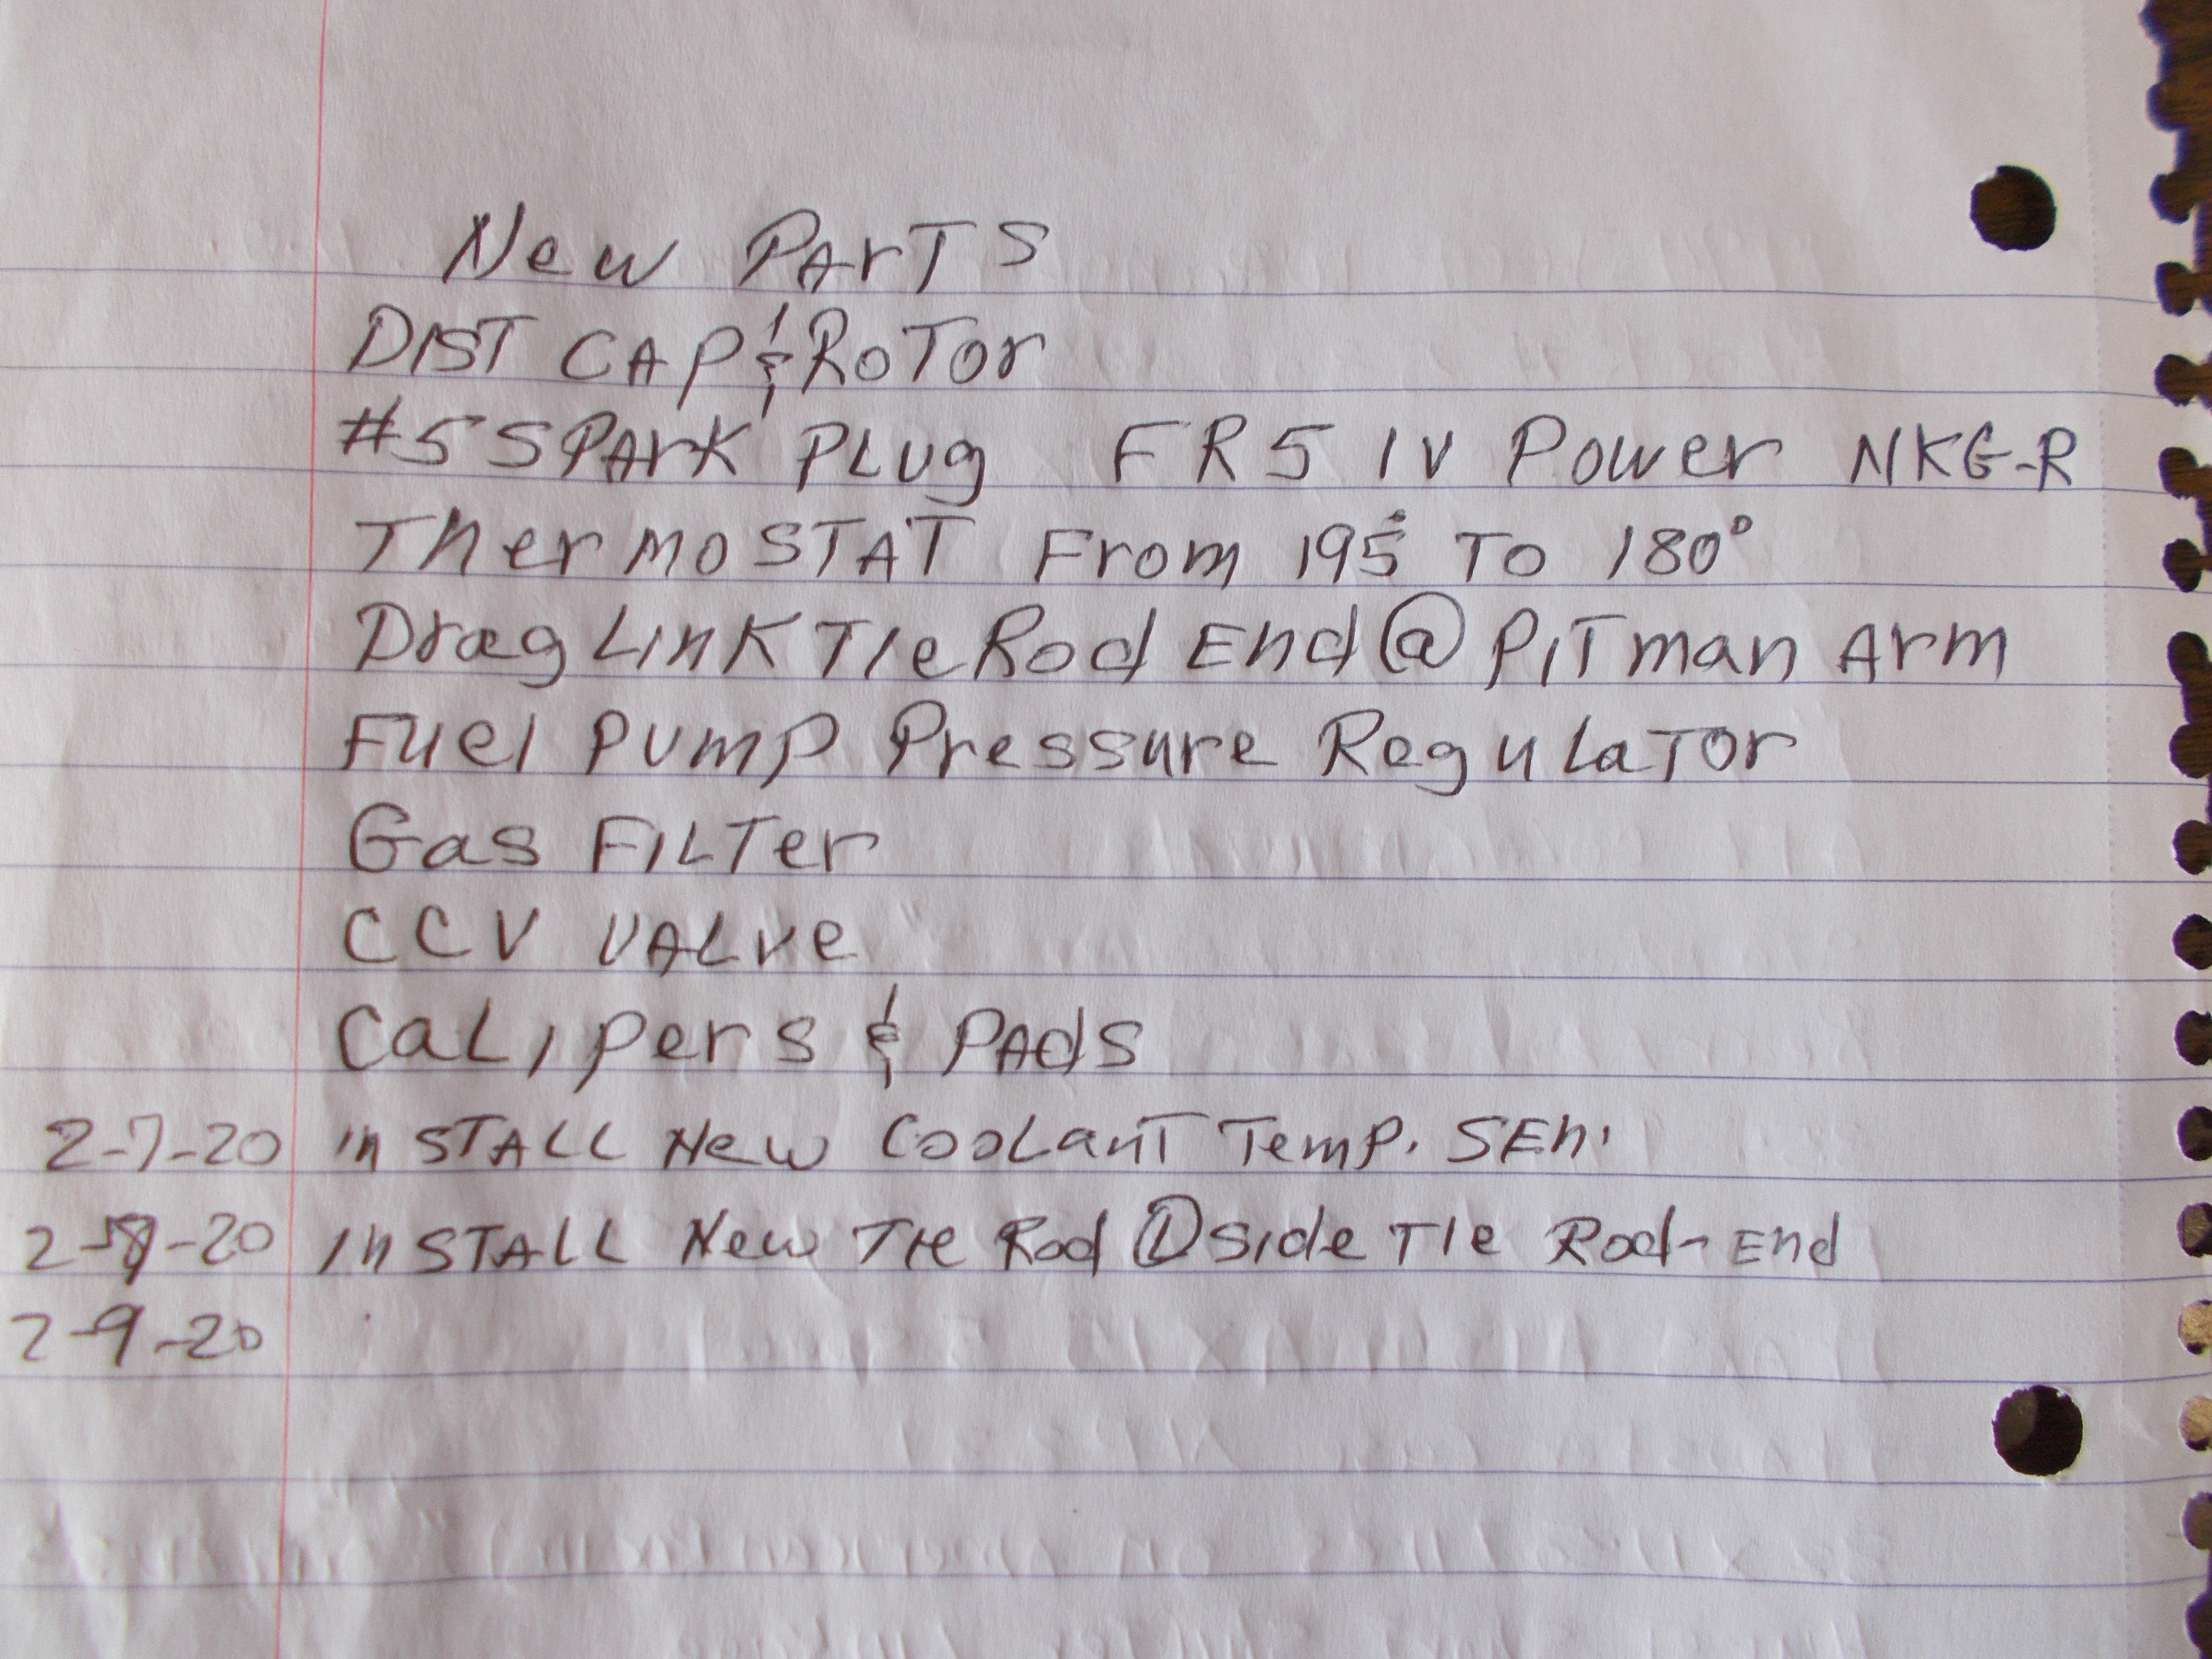 New Parts
DIST CAP & ROTOr
#5 SPArK PLug FR5 IV Power NKG-R
ThermoSTAT From 195° TO 180°
Drag Link TIe Rod End @ PITman Arm
Fuel Pump Pressure Regulator
Gas FILTer
CCV VALVe
CaLipers & PAds
2-7-20 inSTALL New CooLanT Temp. SEn.
2-8-20 InSTALL New TIe Rod D side TIe Rod-End
2-9-20